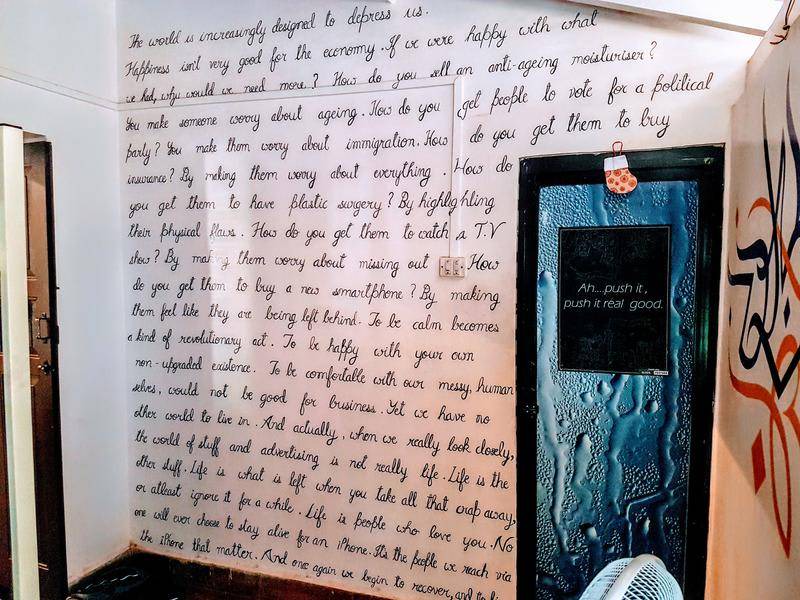 The world is increasingly designed to depress us.
Happiness isn't very good for the economy. If we were happy with what
we had, why would we need more? How do you sell an anti-ageing moisturiser?
You make someone worry about ageing. How do you get people to vote for a political
party? You make them worry about immigration. How do you get them to buy
insurance? By making them worry about everything. How do
you get them to have plastic surgery? By highlighting
their physical flaws. How do you get them to watch a T.V
show? By making them worry about missing out. How
do you get them to buy a new smartphone? By making
them feel like they are being left behind. To be calm becomes
a kind of revolutionary act. To be happy with your own
non-upgraded existence. To be comfortable with our messy, human
selves, would not be good for business. Yet we have no
other world to live in. And actually, when we really look closely,
the world of stuff and advertising is not really life. Life is the
other stuff. Life is what is left when you take all that crap away,
or atleast ignore it for a while. Life is people who love you. No
one will ever choose to stay alive for an iPhone. It's the people we reach via
the iPhone that matter. And once again we begin to recover, and to
Ah....push it,
push it real good.